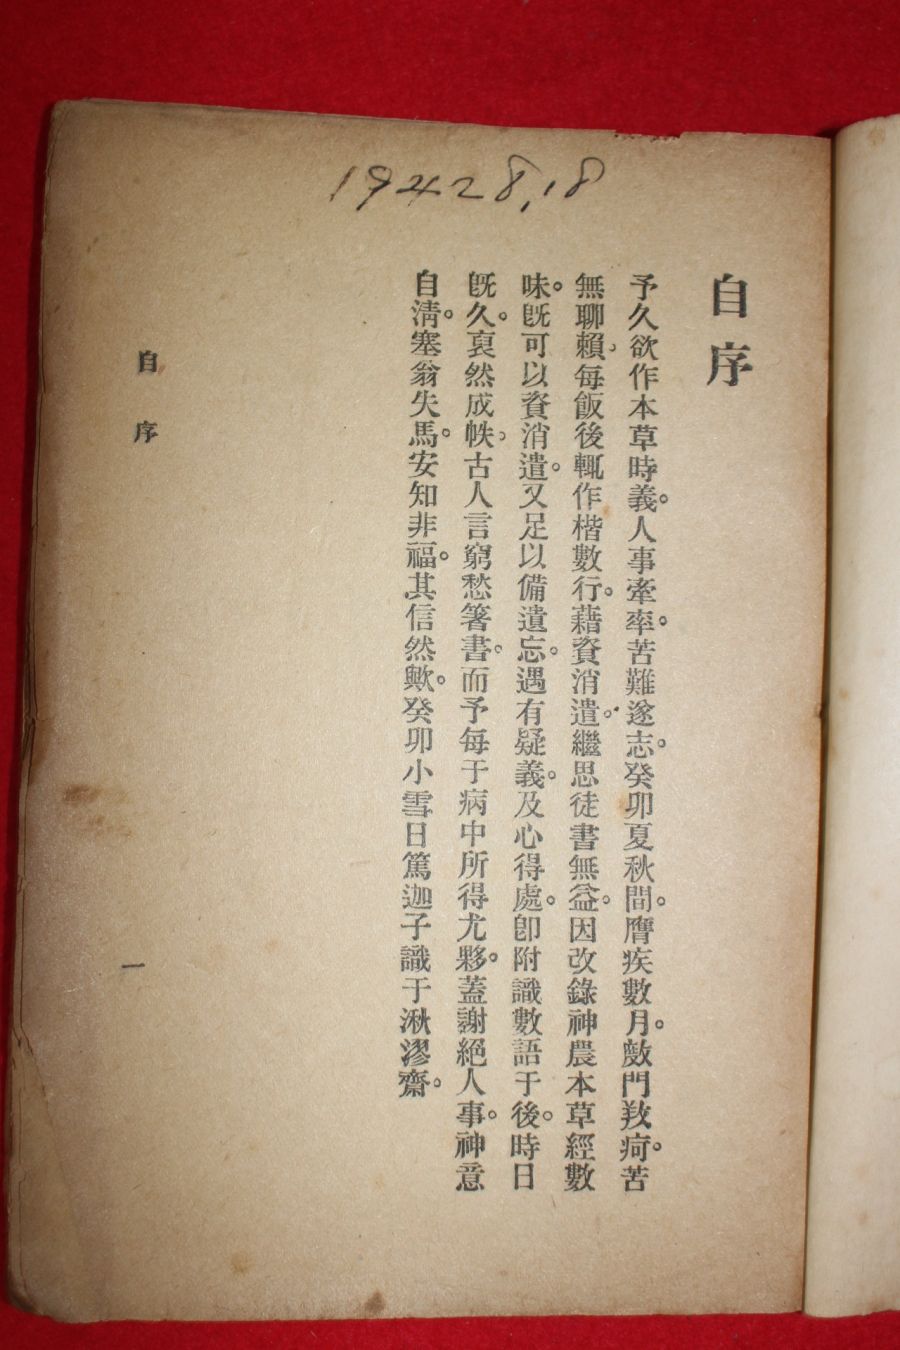 1942 8,18
自序
予久欲作本草時義。人事牽率。苦難遂志。癸卯夏秋間。膺疾數月。斆門𢼄疴。苦
無聊賴。每飯後輒作楷數行。藉資消遣。繼思徒書無益。因改錄神農本草經數
味。旣可以資消遣。又足以備遺忘。遇有疑義。及心得處。卽附識數語于後。時日
旣久。裒然成帙。古人言窮愁箸書。而予每于病中所得尤夥。蓋謝絕人事。神意
自淸。塞翁失馬。安知非福。其信然歟。癸卯小雪日篤迦子識于湫漻齋。
自序
一